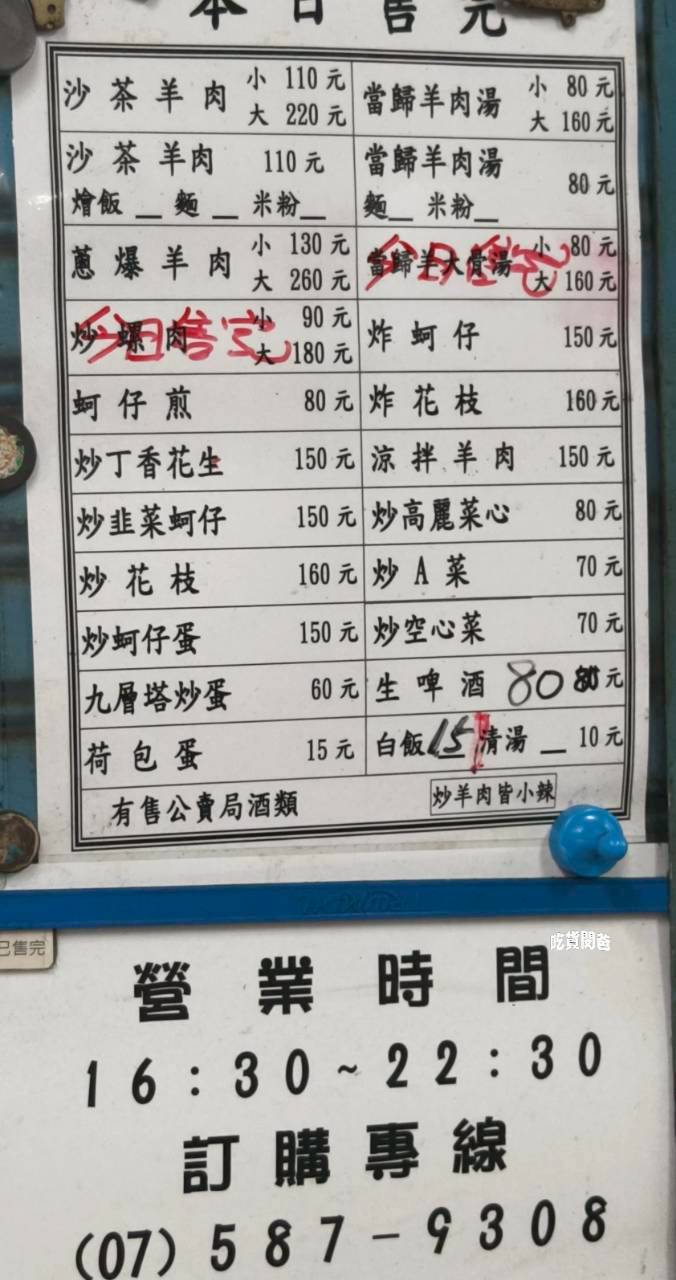 本日售完
沙茶羊肉 小 110元 大 220元
當歸羊肉湯 小 80元 大 160元
沙茶羊肉 110元
燴飯__ 麵__ 米粉__
當歸羊肉湯 80元
麵__ 米粉__
蔥爆羊肉 小 130元 大 260元
當歸羊大骨湯 小 80元 大 160元
今日售完
炒螺肉 小 90元 大 180元
今日售完
炸蚵仔 150元
蚵仔煎 80元
炸花枝 160元
炒丁香花生 150元
涼拌羊肉 150元
炒韭菜蚵仔 150元
炒高麗菜心 80元
炒花枝 160元
炒A菜 70元
炒蚵仔蛋 150元
炒空心菜 70元
九層塔炒蛋 60元
生啤酒 80 80元
荷包蛋 15元
白飯15 清湯__ 10元
有售公賣局酒類
炒羊肉皆小辣
已售完
吃貨閔爸
營業時間
16:30~22:30
訂購專線
(07)587-9308